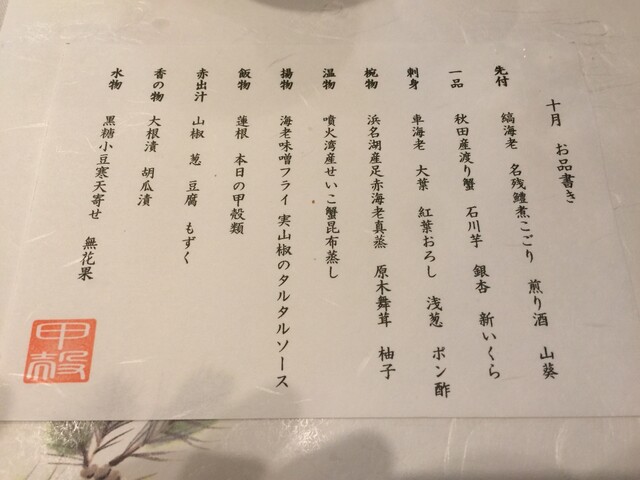 十月　お品書き
先付　縞海老　名残鱧煮こごり　煎り酒　山葵
一品　秋田産渡り蟹　石川芋　銀杏　新いくら
刺身　車海老　大葉　紅葉おろし　浅葱　ポン酢
椀物　浜名湖産足赤海老真蒸　原木舞茸　柚子
温物　噴火湾産せいこ蟹昆布蒸し
揚物　海老味噌フライ　実山椒のタルタルソース
飯物　蓮根　本日の甲殻類
赤出汁　山椒　葱　豆腐　もずく
香の物　大根漬　胡瓜漬
水物　黒糖小豆寒天寄せ　無花果
甲殻